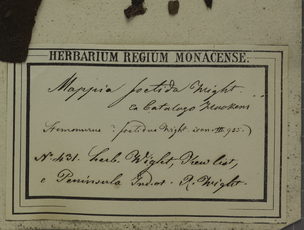 HERBARIUM REGIUM MONACENSE.
Mappia foetida Wight
ex Catalogo Kewensi
foetidus Wight icon. tb. 955.)
No. 431. herb. Wight, Kew list,
e Peninsula Ind. or. R. Wight.